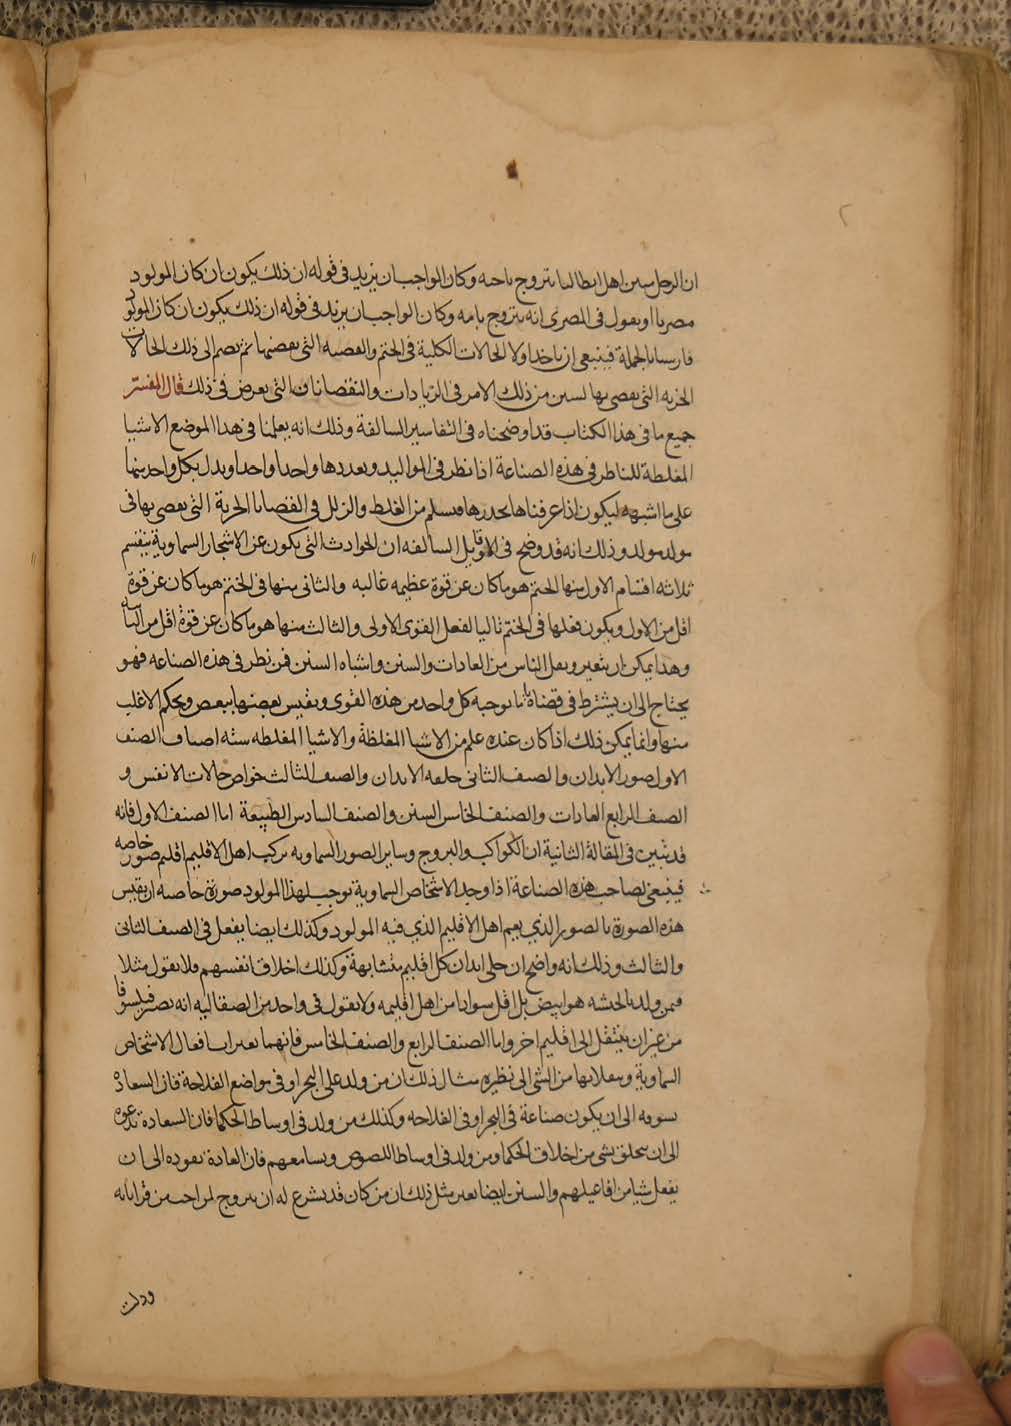 ان الرجل من اهل ايطاليا يتزوج باخته وكان الواجب ان يزيد في قوله ان ذلك يكون ان كان المولود
مصريا او يقول في المصري انه يتزوج بامه وكان الواجب ان يزيد في قوله ان ذلك يكون ان كان المولود
فارسيا بالجملة فينبغي ان ياخذ اولا الحالات الكلية في الختم والقصبه التي بعضها ثم يضم الى ذلك الحالات
الجزيه التي يقضي بها ليبين من ذلك الامر في الزيادات والنقصانات التي يعرض في ذلك قال المفسر
جميع ما في هذا الكتاب قد اوضحناه في التفاسير السالفة وذلك انه يعلمنا في هذا الموضع الاشيا
المغلطة للناظر في هذه الصناعة اذا نظر في المواليد ويعددها واحدا واحدا ويدل بكل واحد منها
على ما اشبهه ليكون اذا عرفناها نحذرها فنسلم من الغلط والزلل في القضايا الجزية التي يقضي بها في
مولد مولد وذلك انه قد وضح في الاقاويل السالفه ان الحوادث التي يكون عن الاشخاص السماوية ينقسم
ثلاثه اقسام الاول منها الحتم هو ما كان عن قوة عظيمه غالبه والثاني منها في الختم هو ما كان عن قوة
اقل من الاول ويكون فعلها في الختم تاليا لفعل القوى الاولى والثالث منها هو ما كان عن قوة اقل من الثانيه
وهذا يمكن ان يتغير وينقل الناس من العادات والسنن واشباه السنن فمن نظر في هذه الصناعه فهو
يحتاج الى ان يشترط في قضاياه ما توجبه كل واحد من هذه القوى ويقيس بعضها ببعض ويحكم الاغلب
منها وانما يمكن ذلك اذا كان عنده علم من الاشيا المغلظة والاشيا المغلطه سته اصناف الصنف
الاول صور الابدان والصنف الثاني خلقه الابدان والصنف الثالث خواص حالات الانفس و
الصنف الرابع العادات والصنف الخامس السنن والصنف السادس الطبيعة اما الصنف الاول فانه
قد تبين في المقالة الثانية ان الكواكب والبروج وساير الصور السماويه تركب اهل الاقليم اقليم صور خاصه
فينبغي لصاحب هذه الصناعة اذا وجد الاشخاص السماوية توجب لهذا المولود صورة خاصه ان يقيس
هذه الصورة بالصور الذي يعم اهل الاقليم الذي فيه المولود وكذلك ايضا يفعل في الصنف الثاني
والثالث وذلك انه واضح ان حلى ابدان كل اقليم متشابهة وكذلك اخلاق انفسهم فلا يقول مثلا
فمن ولد بالحبشه هو ابيض بل اقل سوادا من اهل اقليمه ولا يقول في واحد من الصقالبه انه يصير فيلسوفا
من غير ان ينتقل الى اقليم اخر واما الصنف الرابع والصنف الخامس فانهما يغيران افعال الاشخاص
السماوية وينقلانها من الشي الى نظيره مثال ذلك ان من ولد على البحر او في مواضع الفلاحة فان السعادة
تسوقه الى ان يكون صناعة في البحر او في الفلاحه وكذلك من ولد في اوساط الحكما فان السعادة تدعوه
الى ان يتخلق بشي من اخلاق الحكما ومن ولد في اوساط اللصوص ويسامعهم فان العادة تقوده الى ان
يفعل شيا من افاعيلهم والسنن ايضا يغير مثل ذلك ان من كان قد يشرع له ان يتزوج لمن احب من قراباته